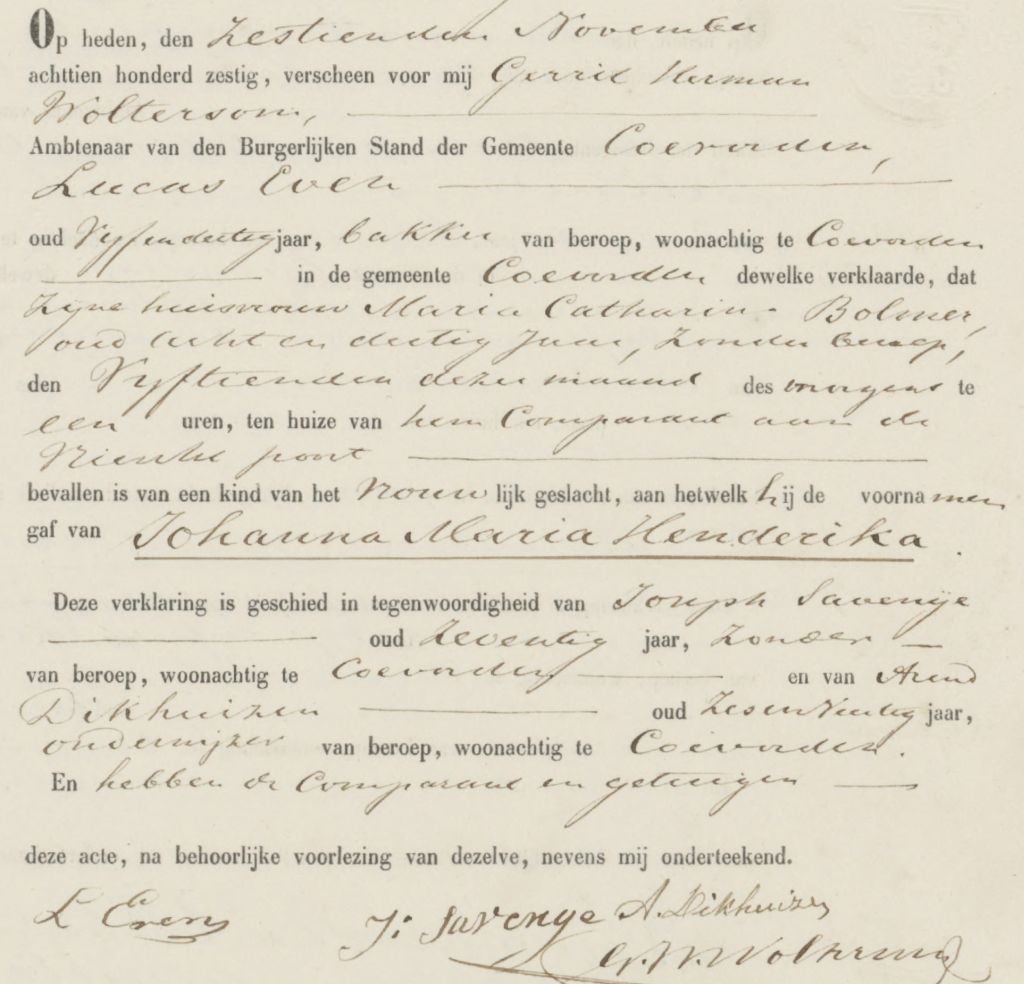 Op heden, den Zestienden November
achttien honderd zestig, verscheen voor mij Gerrit Herman
Wolterson,
Ambtenaar van den Burgerlijken Stand der Gemeente Coevorden,
Lucas Even
oud Vyfendertig jaar, bakker van beroep, woonachtig te Coevorden
in de gemeente Coevorden dewelke verklaarde, dat
zyne huisvrouw Maria Catharina Bolmer,
oud acht en dertig jaar, zonder beroep,
den Vyftienden dezer maand des morgens te
een uren, ten huize van hem Comparant aan de
poort
bevallen is van een kind van het vrouwlijk geslacht, aan hetwelk hij de voornamen
gaf van Johanna Maria Henderika.
Deze verklaring is geschied in tegenwoordigheid van Joseph Savenye
oud zeventig jaar, zonder
van beroep, woonachtig te Coevorden en van Arend
Dikhuizen oud zesenveertig jaar,
onderwijzer van beroep, woonachtig te Coevorden.
En hebben de Comparant en getuigen
deze acte, na behoorlijke voorlezing van dezelve, nevens mij onderteekend.
L Evens
J: Savenye A. Dikhuizen